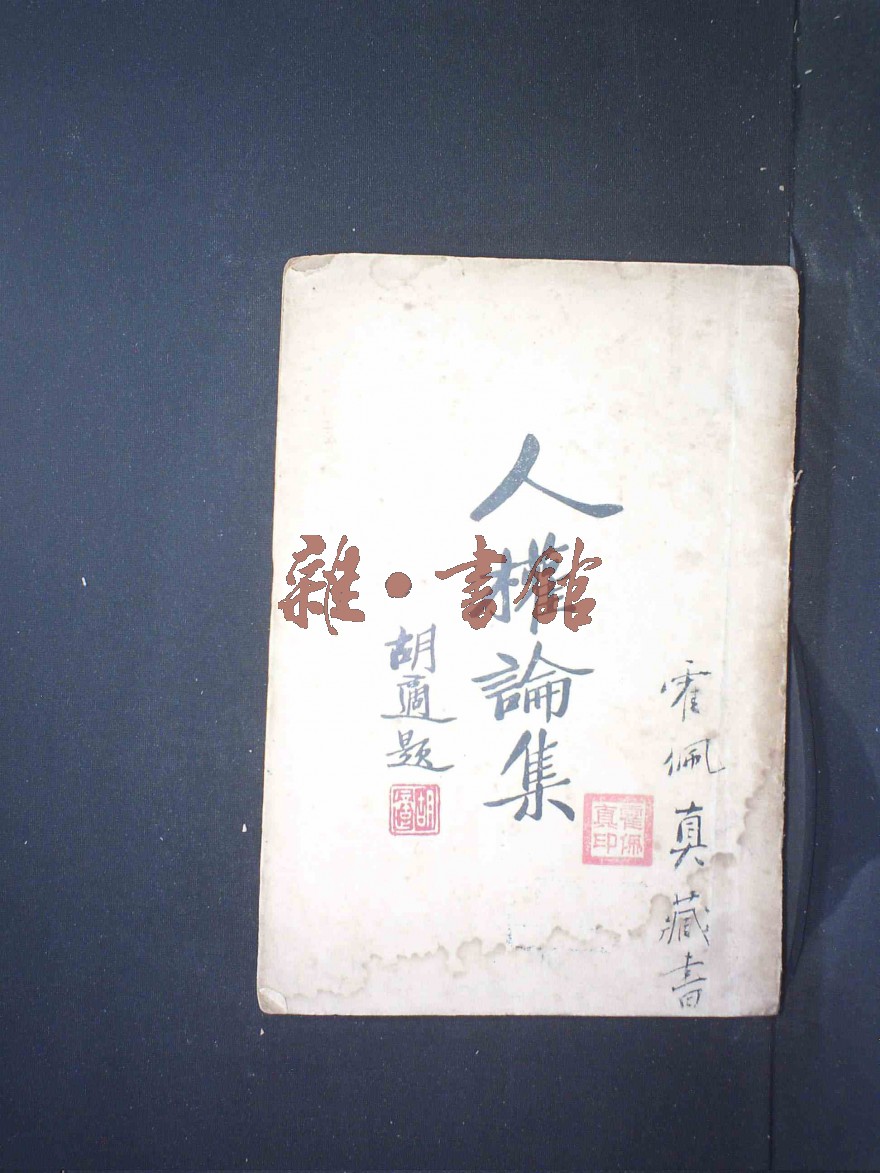 霍佩真藏書
霍佩
真印
人權論集
胡適題
胡適
雜•書館